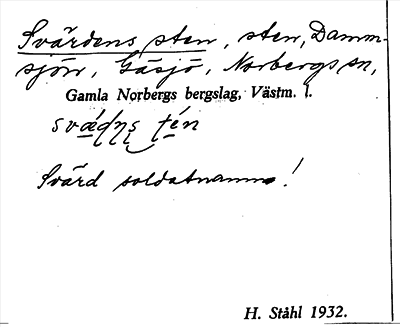 Svärdens sten, sten, Damm-
sjön, Gåsjö, Norbergs sn,
Gamla Norbergs bergslag, Västm. l.
Svärd soldatnamn!
H. Ståhl 1932.